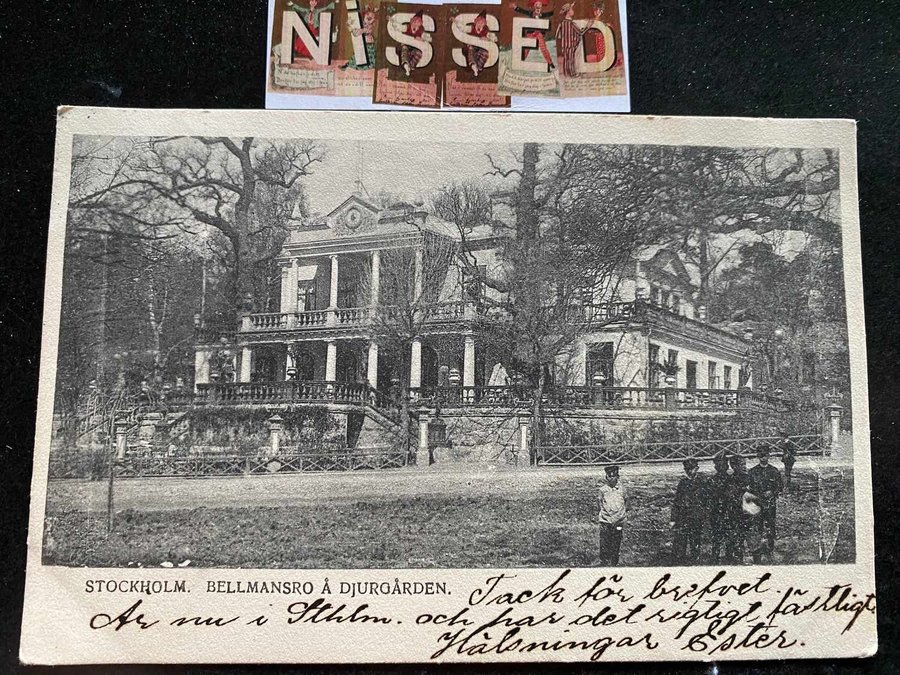 NISSED
STOCKHOLM. BELLMANSRO Å DJURGÅRDEN.
Tack för brefvet.
Är nu i Sthlm. och har det rigtigt fästligt
Hälsningar Ester.